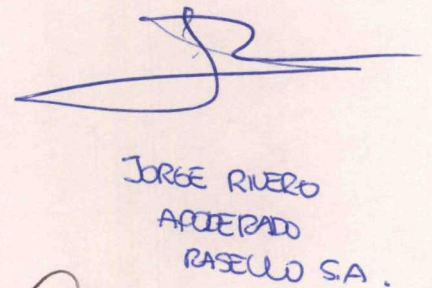 JORGE RIVERO
APODERADO
RASELLO S.A.